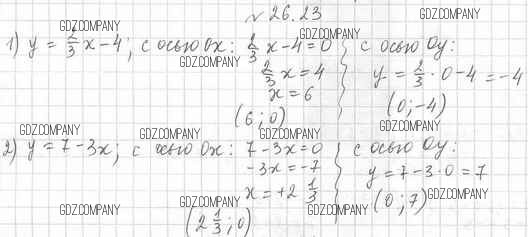 № 26.23
GDZ.COMPANY
1) y = 2/3 x - 4; с осью Ox: 2/3 x - 4 = 0 с осью Oy:
2/3 x = 4 y = 2/3 · 0 - 4 = -4
x = 6 (0; -4)
(6; 0)
2) y = 7 - 3x; с осью Ox: 7 - 3x = 0 с осью Oy:
-3x = -7 y = 7 - 3·0 = 7
x = +2 1/3 (0; 7)
(2 1/3; 0)
GDZ.COMPANY
GDZ.COMPANY
GDZ.COMPANY
GDZ.COMPANY
GDZ.COMPANY
GDZ.COMPANY
GDZ.COMPANY
GDZ.COMPANY
GDZ.COMPANY
GDZ.COMPANY
GDZ.COMPANY
GDZ.COMPANY